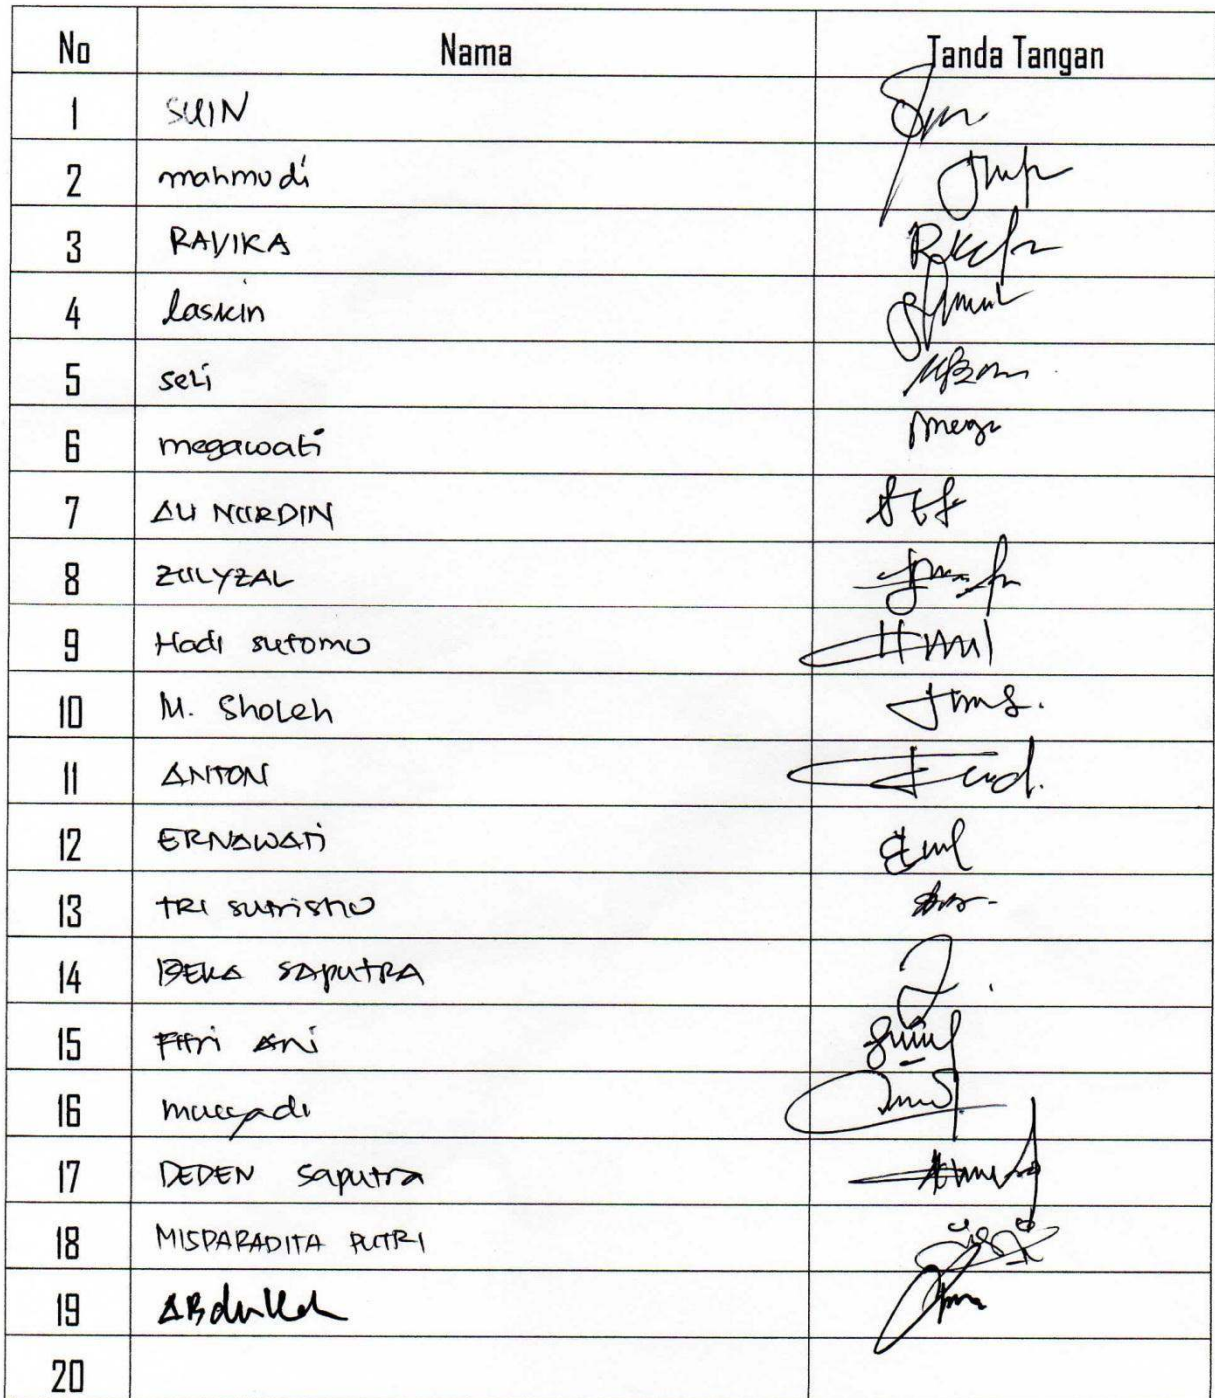 No Nama Tanda Tangan
1 SUIN
2 mahmudi
3 RAVIKA
4 laskin
5 seli
6 megawati
7 ALI NURDIN
8 ZULYZAL
9 Hadi sutomo
10 M. Sholeh
11 ANTON
12 ERNAWATi
13 TRI sutrisno
14 BEKA SAPUTRA
15 Fitri Ani
16 mulyadi
17 DEDEN Saputra
18 MISPARADITA PUTRI
19 ABdullah
20